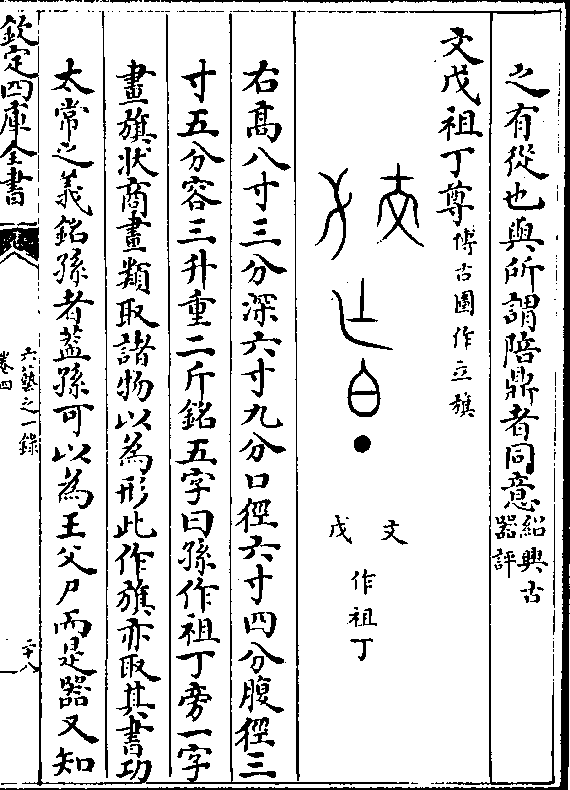 之有從也與所謂陪鼎者同意紹興古
器評
文戊祖丁尊博古圖作立旗
文 戊
作祖丁
右髙八寸三分深六寸九分口徑六寸四分腹徑三
寸五分容三升重二斤銘五字曰孫作祖丁旁一字
畫旗狀商畫類取諸物以為形此作旗亦取其書功
太常之義銘孫者蓋孫可以為王父尸而是器又知
欽定四庫全書
六藝之一録
卷四
二十八